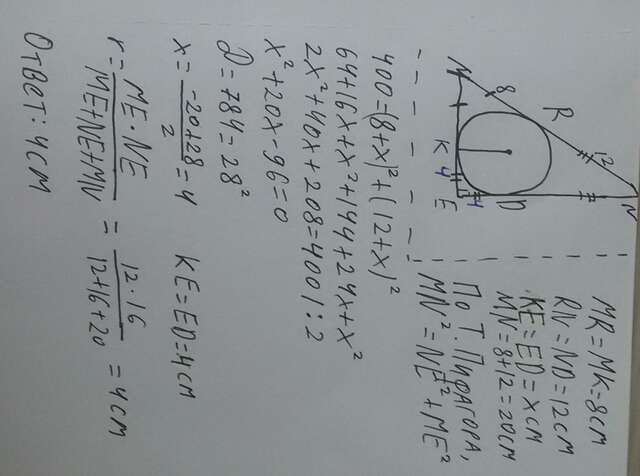 M 8 R 12 N
K 4 E 4 D
MR=MK=8см
RN=ND=12см
KE=ED=xсм
MN=8+12=20см
По Т. Пифагора,
MN²=NE²+ME²
400=(8+x)²+(12+x)²
64+16x+x²+144+24x+x²
2x²+40x+208=400 |:2
x²+20x-96=0
D=784=28²
x=(-20+28)/2=4 KE=ED=4см
r=ME·NE/(ME+NE+MN)=12·16/(12+16+20)=4см
Ответ: 4см